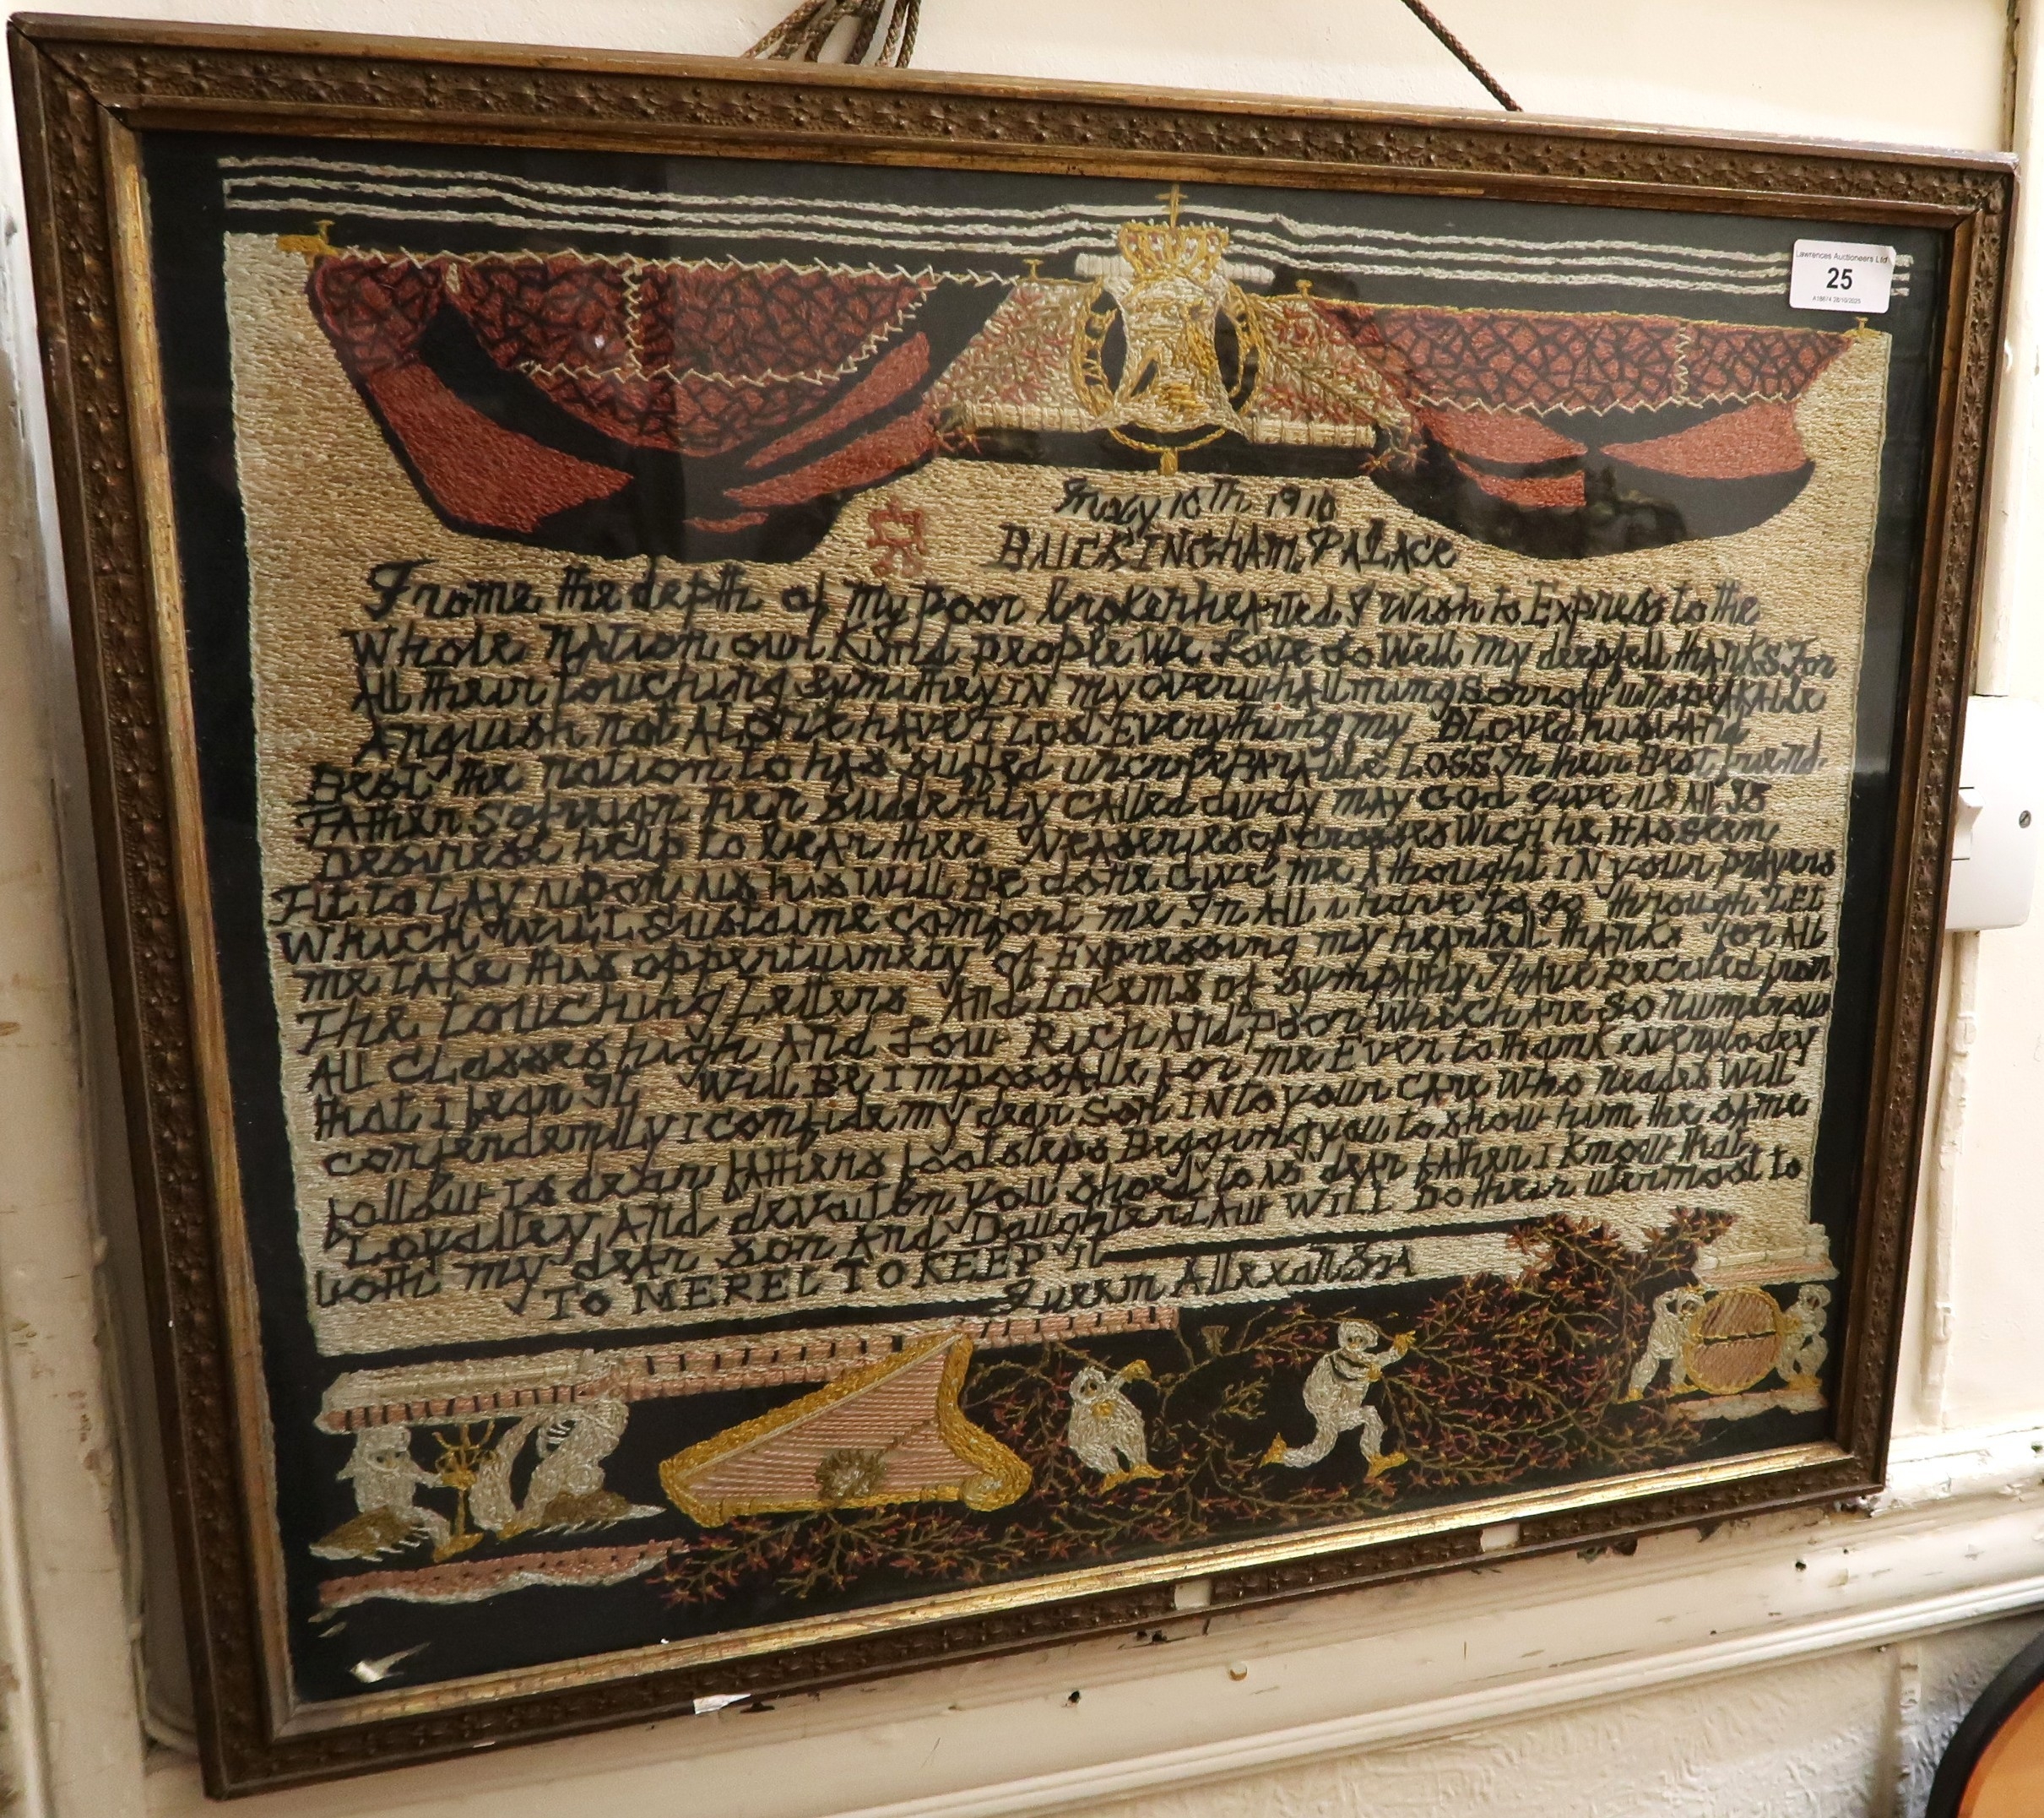 Lawrences Auctioneers Ltd
25
May 10Th 1910
BUCKINGHAM PALACE
Frome the depth of my poor brokenhearted I wish to Express to the
Whole nation owl Kind people We Love so Well my deepfell thanks For
All their touching Symithey IN my overwhallming Sorrow unspeakable
Anguish not ALONE have I Lost Everything my BLoved husband
Best the nation to has suffed Loss In their Best friend
Father then suddenly called may God give us All Is
help to bear thee of crosses Wich he has seem
Fit to LAY upon us his Will Be done Give me A thought IN your prayers
Which will sustaime comfort me In All i have to go through LET
me take this of Expressing my heartell thanks for All
The touching Letters And tokems of sympathy I have recceted from
All Classes high And Low Rich And Poor Which Are So numerous
that I bear It Will Be impossable for me Ever to thank everybodey
I confide my dear Son INto your care Who neades Will
follow Is dear fathers footsteps Begging you to show him the same
Loyalltey And devoution you shoed to is dear father I Know that
both my dear son And Daughter Law Will Do their utermost to
TO MERET TO KEEP It
Queem Allexandra